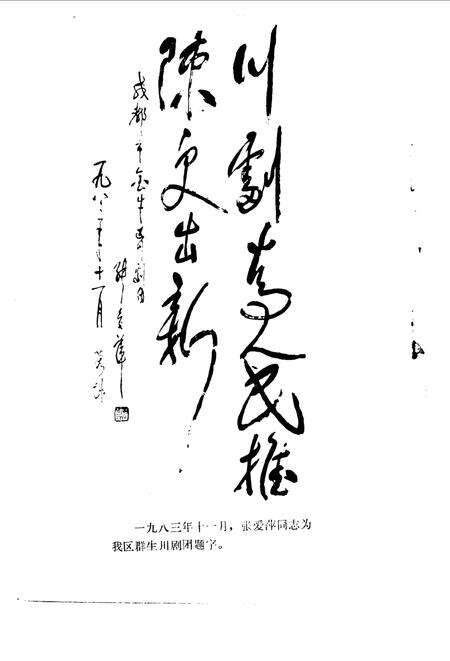 川劇为人民推
陳更出新
成都市金牛
张爱萍
一九八三年十一月
一九八三年十一月，张爱萍同志为
我区群生川剧团题字。